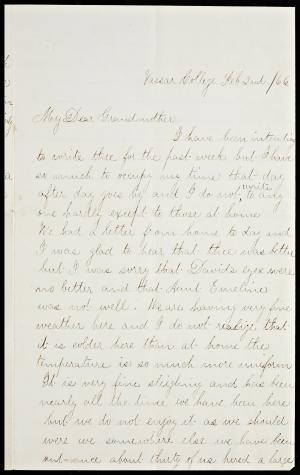 Vassar College Feb 2nd /66
My Dear Grandmother
I have been intending
to write thee for the past week but I have
so much to occupy my time that day
after day goes by and I do not write to any
one hardly except to those at home
We had a letter from home to day and
I was glad to hear that thee was better
but I was sorry that Davids eyes were
no better and that Aunt Emeline
was not well. We are having very fine
weather here and I do not realize that
it is colder here than at home the
temperature is so much more uniform
It is very fine sleighing and has been
nearly all the time we have been here
but we do not enjoy it as we should
were we somewhere else we have been
out once about thirty of us hired a large